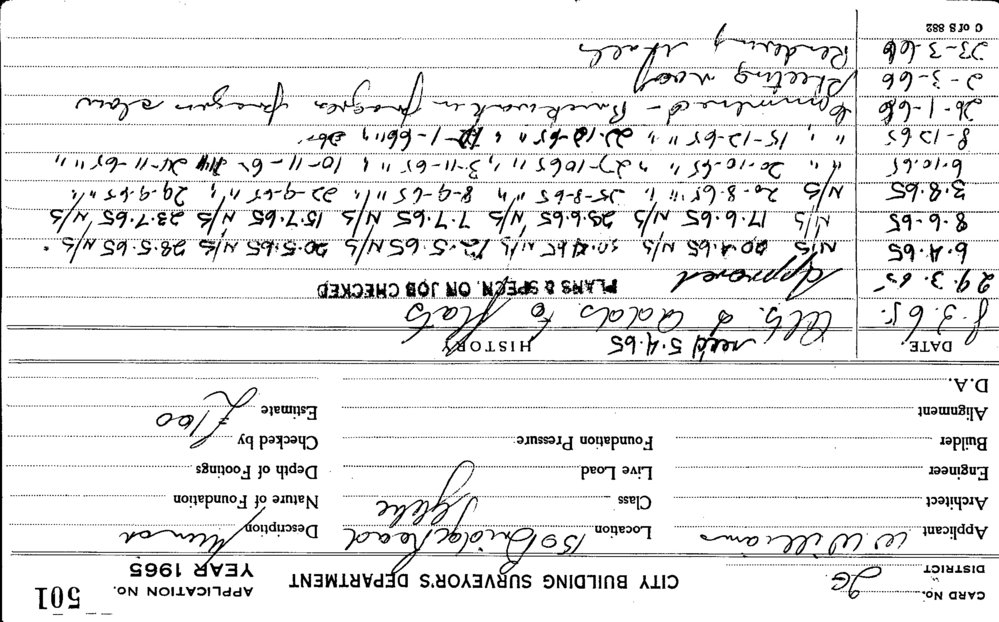 CARD No. 2G CITY BUILDING SURVEYOR'S DEPARTMENT APPLICATION No. 501
DISTRICT YEAR 1965
Applicant W. Williams Location 150 Bridge Road Description Minor
Architect Class Glebe Nature of Foundation
Engineer Live Load Depth of Footings
Builder Foundation Pressure Checked by
Alignment Estimate £100
D.A.
DATE. rec'd 5.4.65 HISTORY
8.3.65. Alts. & Adds to flats
29.3.65 Approved PLANS & SPECN. ON JOB CHECKED
6.4.65 N/S 20.4.65 N/S 30.4.65 N/S 12.5.65 N/S 20.5.65 N/S 28.5.65 N/S
8.6.65 N/S 17.6.65 N/S 25.6.65 N/S 7.7.65 N/S 15.7.65 N/S 23.7.65 N/S
3.8.65 N/S 20.8.65 " " 25-8-65 " " 8-9-65 " " 22-9-65 " " 29.9.65 " "
6.10.65 " " 20.10.65 " " 27-10.65 " " 3-11-65 " " 10-11-65 24-11-65 " "
8-12 65 " " 15-12-65 " " 22.12-65 " " 12-1-66 " "
26-1-66 Commenced - Brickwork in progress progress slow
2-3-66 Sheeting roof
23-3-66 Rendering walls
C of S 882